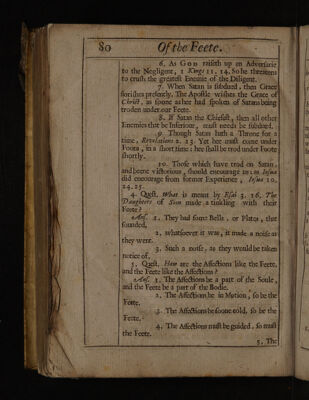 80 Of the Feete.
6. As GOD raiseth up an Adversarie
to the Negligent, 1 Kings 11. 14. So he threatens
to crush the greatest Enemie of the Diligent.
7. When Satan is subdued, then Grace
florisheth presently. The Apostle wishes the Grace of
Christ, as soone as hee had spoken of Satans being
troden under our Feete.
8. If Satan the Chiefest, then all other
Enemies that be Inferiour, must needs be subdued.
9. Though Satan hath a Throne for a
time, Revelations 2. 13. Yet hee must come under
Foote, in a short time: hee shall be trod under Foote
shortly.
10. Those which have trod on Satan,
and beene victorious, should encourage us: as Josua
did encourage from former Experience, Josua 10.
24. 25.
4. Quest. What is meant by Esai 3. 16. The
Daughters of Sion made a tinkling with their
Feete?
Ans. 1. They had some Bells, or Plates, that
sounded,
2. whatsoever it was, it made a noise as
they went.
3. Such a noise, as they would be taken
notice of.
5. Quest. How are the Affections like the Feete,
and the Feete like the Affections?
Ans. 1. The Affections be a part of the Soule,
and the Feete be a part of the Bodie.
2. The Affections be in Motion, so be the
Feete.
3. The Affections be soone cold, so be the
Feete.
4. The Affections must be guided, so must
the Feete.
5. The